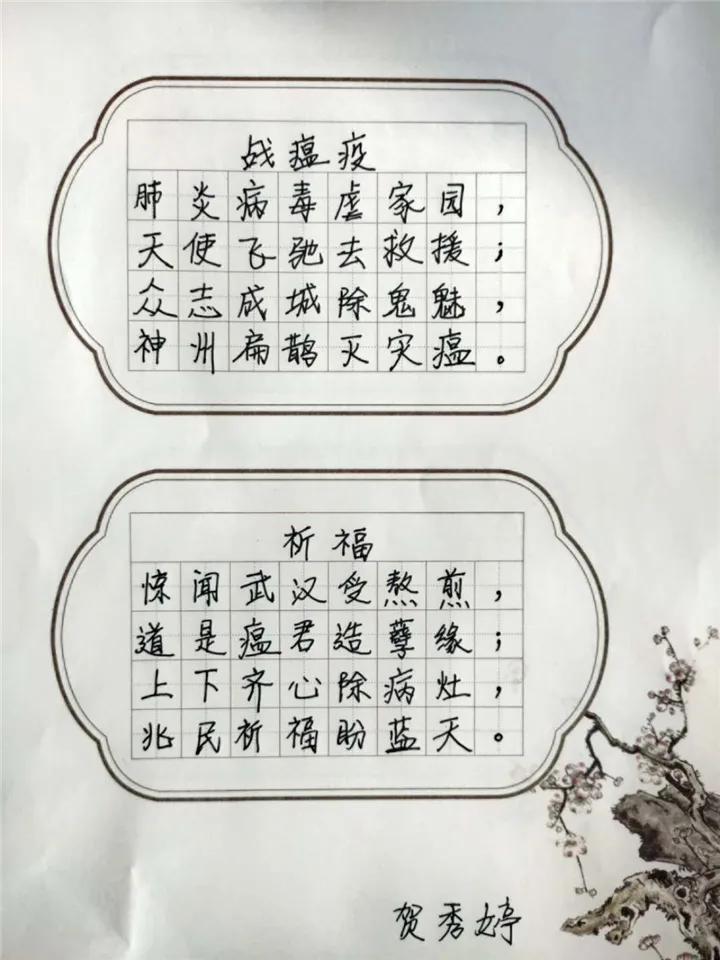 战瘟疫
肺炎病毒虐家园，
天使飞驰去救援；
众志成城除鬼魅，
神州扁鹊灭灾瘟。
祈福
惊闻武汉受熬煎，
道是瘟君造孽缘；
上下齐心除病灶，
兆民祈福盼蓝天。
贺秀婷